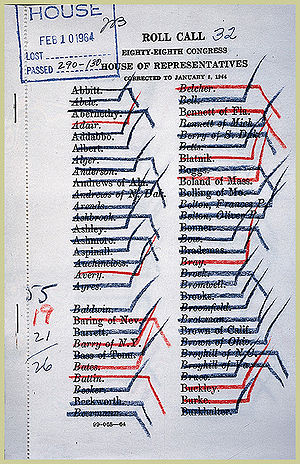 HOUSE
FEB 10 1964
LOST
PASSED 290-130
223
ROLL CALL 32
EIGHTY-EIGHTH CONGRESS
HOUSE OF REPRESENTATIVES
CORRECTED TO JANUARY 8, 1964
Abbitt
Abele
Abernethy
Adair
Addabbo
Albert
Alger
Anderson
Andrews of Ala.
Andrews of N. Dak.
Arends
Ashbrook
Ashley
Ashmore
Aspinall
Auchincloss
Avery
Ayres
Baldwin
Baring of Nev.
Barrett
Barry of N.Y.
Bass of Tenn.
Bates
Battin
Becker
Beckworth
Beermann
Belcher
Bell
Bennett of Fla.
Bennett of Mich.
Berry of S. Dak.
Betts
Blatnik
Boggs
Boland of Mass.
Bolling of Mo.
Bolton, Frances P.
Bolton, Oliver P.
Bonner
Bow
Brademas
Bray
Brock
Bromwell
Brooks
Broomfield
Brotzman
Brown of Calif.
Brown of Ohio
Broyhill of N.C.
Broyhill of Va.
Bruce
Buckley
Burke
Burkhalter
55
19
21
26
99-065—64